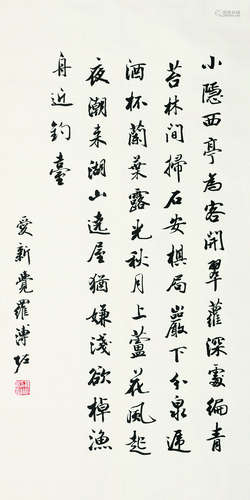 小隱西亭為客開翠蘿深處徧青
苔林間掃石安棋局巖下分泉遞
酒杯蘭葉露光秋月上蘆花風起
夜潮来湖山遶屋猶嫌淺欲棹漁
舟近釣臺
愛新覺羅溥佐